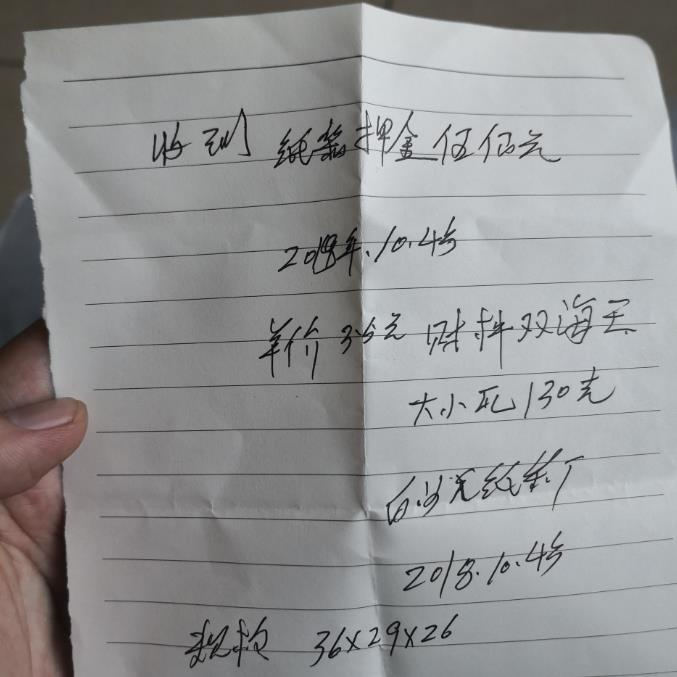 收到 纸箱押金伍佰元
2018年.10.4号
单价 3.5元 财料双海王
大小瓦130克
白沙 纸箱厂
2018.10.4号
规格 36×29×26